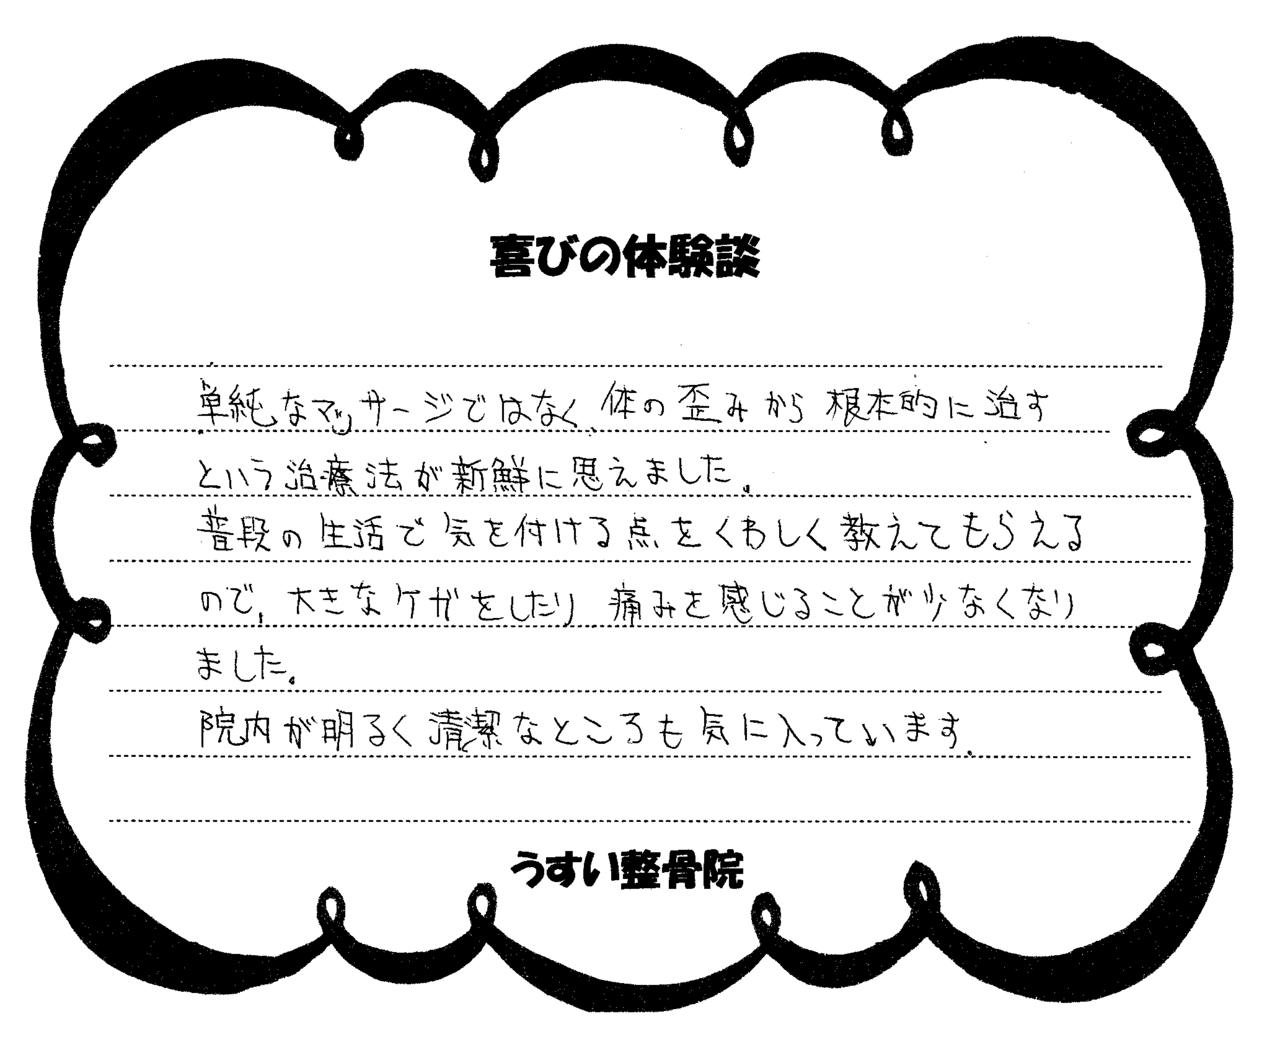 喜びの体験談
単純なマッサージではなく、体の歪みから根本的に治す
という治療法が新鮮に思えました。
普段の生活で気を付ける点をくわしく教えてもらえる
ので、大きなケガをしたり痛みを感じることが少なくなり
ました。
院内が明るく清潔なところも気に入っています。
うすい整骨院